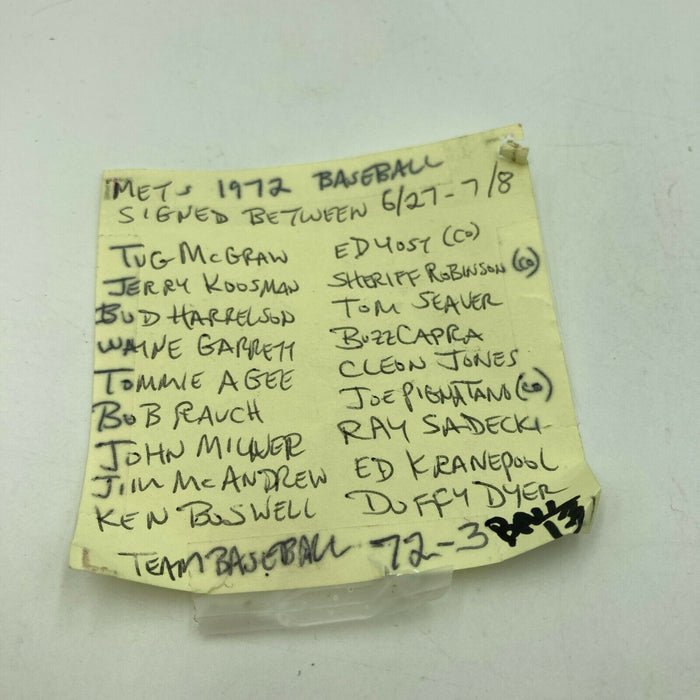 METS 1972 BASEBALL
SIGNED BETWEEN 6/27-7/8
TUG MCGRAW
JERRY KOOSMAN
BUD HARRELSON
WAYNE GARRETT
TOMMIE AGEE
BOB RAUCH
JOHN MILNER
JIM MCANDREW
KEN BOSWELL
ED YOST (CO)
SHERIFF ROBINSON (CO)
TOM SEAVER
BUZZ CAPRA
CLEON JONES
JOE PIGNATANO (CO)
RAY SADECKI
ED KRANEPOOL
DUFFY DYER
TEAM BASEBALL 72-3 BALL 13